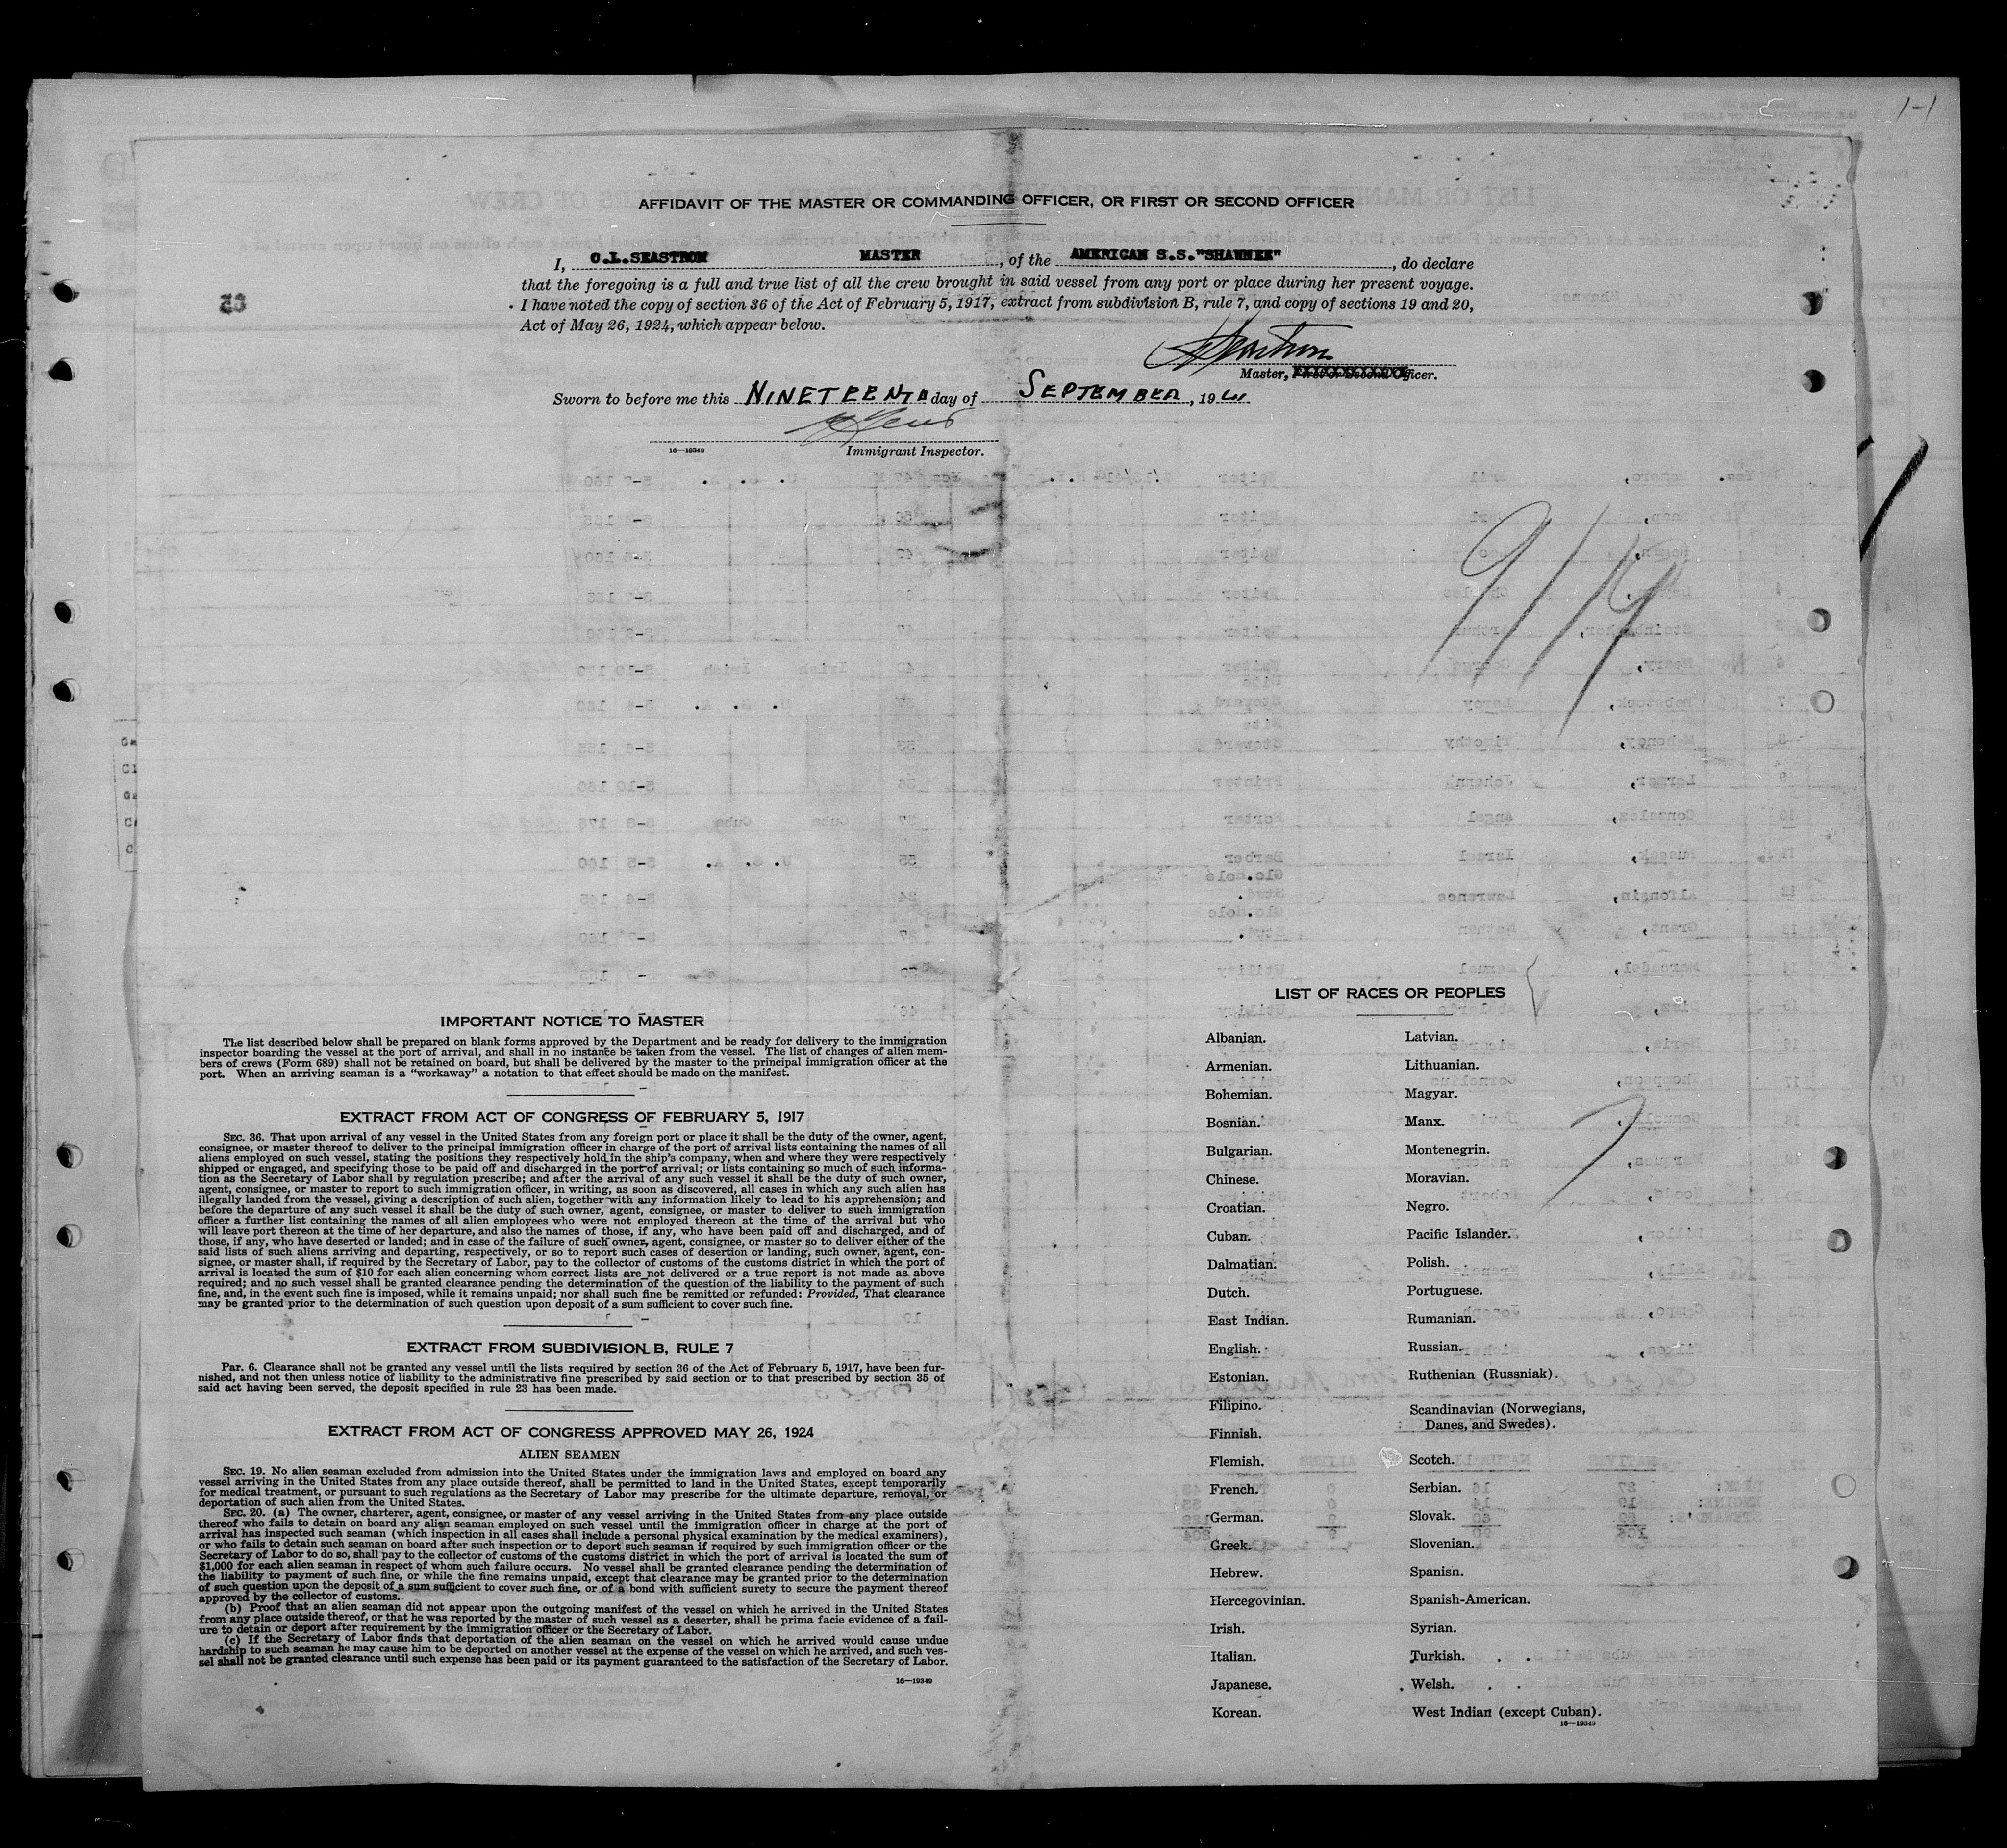 1-1
AFFIDAVIT OF THE MASTER OR COMMANDING OFFICER, OR FIRST OR SECOND OFFICER
I, C.L.SEASTROM MASTER, of the AMERICAN S.S."SHAWNEE", do declare
that the foregoing is a full and true list of all the crew brought in said vessel from any port or place during her present voyage.
I have noted the copy of section 36 of the Act of February 5, 1917, extract from subdivision B, rule 7, and copy of sections 19 and 20,
Act of May 26, 1924, which appear below.
Master, First or Second Officer.
Sworn to before me this NINETEENTH day of SEPTEMBER, 1941
16—19349 Immigrant Inspector.
9/19
IMPORTANT NOTICE TO MASTER
The list described below shall be prepared on blank forms approved by the Department and be ready for delivery to the immigration
inspector boarding the vessel at the port of arrival, and shall in no instance be taken from the vessel. The list of changes of alien mem-
bers of crews (Form 689) shall not be retained on board, but shall be delivered by the master to the principal immigration officer at the
port. When an arriving seaman is a "workaway" a notation to that effect should be made on the manifest.
EXTRACT FROM ACT OF CONGRESS OF FEBRUARY 5, 1917
SEC. 36. That upon arrival of any vessel in the United States from any foreign port or place it shall be the duty of the owner, agent,
consignee, or master thereof to deliver to the principal immigration officer in charge of the port of arrival lists containing the names of all
aliens employed on such vessel, stating the positions they respectively hold in the ship's company, when and where they were respectively
shipped or engaged, and specifying those to be paid off and discharged in the port of arrival; or lists containing so much of such informa-
tion as the Secretary of Labor shall by regulation prescribe; and after the arrival of any such vessel it shall be the duty of such owner,
agent, consignee, or master to report to such immigration officer, in writing, as soon as discovered, all cases in which any such alien has
illegally landed from the vessel, giving a description of such alien, together with any information likely to lead to his apprehension; and
before the departure of any such vessel it shall be the duty of such owner, agent, consignee, or master to deliver to such immigration
officer a further list containing the names of all alien employees who were not employed thereon at the time of the arrival but who
will leave port thereon at the time of her departure, and also the names of those, if any, who have been paid off and discharged, and of
those, if any, who have deserted or landed; and in case of the failure of such owner, agent, consignee, or master so to deliver either of the
said lists of such aliens arriving and departing, respectively, or so to report such cases of desertion or landing, such owner, agent, con-
signee, or master shall, if required by the Secretary of Labor, pay to the collector of customs of the customs district in which the port of
arrival is located the sum of $10 for each alien concerning whom correct lists are not delivered or a true report is not made as above
required; and no such vessel shall be granted clearance pending the determination of the question of the liability to the payment of such
fine, and, in the event such fine is imposed, while it remains unpaid; nor shall such fine be remitted or refunded: Provided, That clearance
may be granted prior to the determination of such question upon deposit of a sum sufficient to cover such fine.
EXTRACT FROM SUBDIVISION B, RULE 7
Par. 6. Clearance shall not be granted any vessel until the lists required by section 36 of the Act of February 5, 1917, have been fur-
nished, and not then unless notice of liability to the administrative fine prescribed by said section or to that prescribed by section 35 of
said act having been served, the deposit specified in rule 23 has been made.
EXTRACT FROM ACT OF CONGRESS APPROVED MAY 26, 1924
ALIEN SEAMEN
SEC. 19. No alien seaman excluded from admission into the United States under the immigration laws and employed on board any
vessel arriving in the United States from any place outside thereof, shall be permitted to land in the United States, except temporarily
for medical treatment, or pursuant to such regulations as the Secretary of Labor may prescribe for the ultimate departure, removal, or
deportation of such alien from the United States.
SEC. 20. (a) The owner, charterer, agent, consignee, or master of any vessel arriving in the United States from any place outside
thereof who fails to detain on board any alien seaman employed on such vessel until the immigration officer in charge at the port of
arrival has inspected such seaman (which inspection in all cases shall include a personal physical examination by the medical examiners),
or who fails to detain such seaman on board after such inspection or to deport such seaman if required by such immigration officer or the
Secretary of Labor to do so, shall pay to the collector of customs of the customs district in which the port of arrival is located the sum of
$1,000 for each alien seaman in respect of whom such failure occurs. No vessel shall be granted clearance pending the determination of
the liability to payment of such fine, or while the fine remains unpaid, except that clearance may be granted prior to the determination
of such question upon the deposit of a sum sufficient to cover such fine, or of a bond with sufficient surety to secure the payment thereof
approved by the collector of customs.
(b) Proof that an alien seaman did not appear upon the outgoing manifest of the vessel on which he arrived in the United States
from any place outside thereof, or that he was reported by the master of such vessel as a deserter, shall be prima facie evidence of a fail-
ure to detain or deport after requirement by the immigration officer or the Secretary of Labor.
(c) If the Secretary of Labor finds that deportation of the alien seaman on the vessel on which he arrived would cause undue
hardship to such seaman he may cause him to be deported on another vessel at the expense of the vessel on which he arrived, and such ves-
sel shall not be granted clearance until such expense has been paid or its payment guaranteed to the satisfaction of the Secretary of Labor.
16—19349
LIST OF RACES OR PEOPLES
Albanian.
Armenian.
Bohemian.
Bosnian.
Bulgarian.
Chinese.
Croatian.
Cuban.
Dalmatian.
Dutch.
East Indian.
English.
Estonian.
Filipino.
Finnish.
Flemish.
French.
German.
Greek.
Hebrew.
Hercegovinian.
Irish.
Italian.
Japanese.
Korean.
Latvian.
Lithuanian.
Magyar.
Manx.
Montenegrin.
Moravian.
Negro.
Pacific Islander.
Polish.
Portuguese.
Rumanian.
Russian.
Ruthenian (Russniak).
Scandinavian (Norwegians,
Danes, and Swedes).
Scotch.
Serbian.
Slovak.
Slovenian.
Spanisn.
Spanish-American.
Syrian.
Turkish.
Welsh.
West Indian (except Cuban).
16—19349